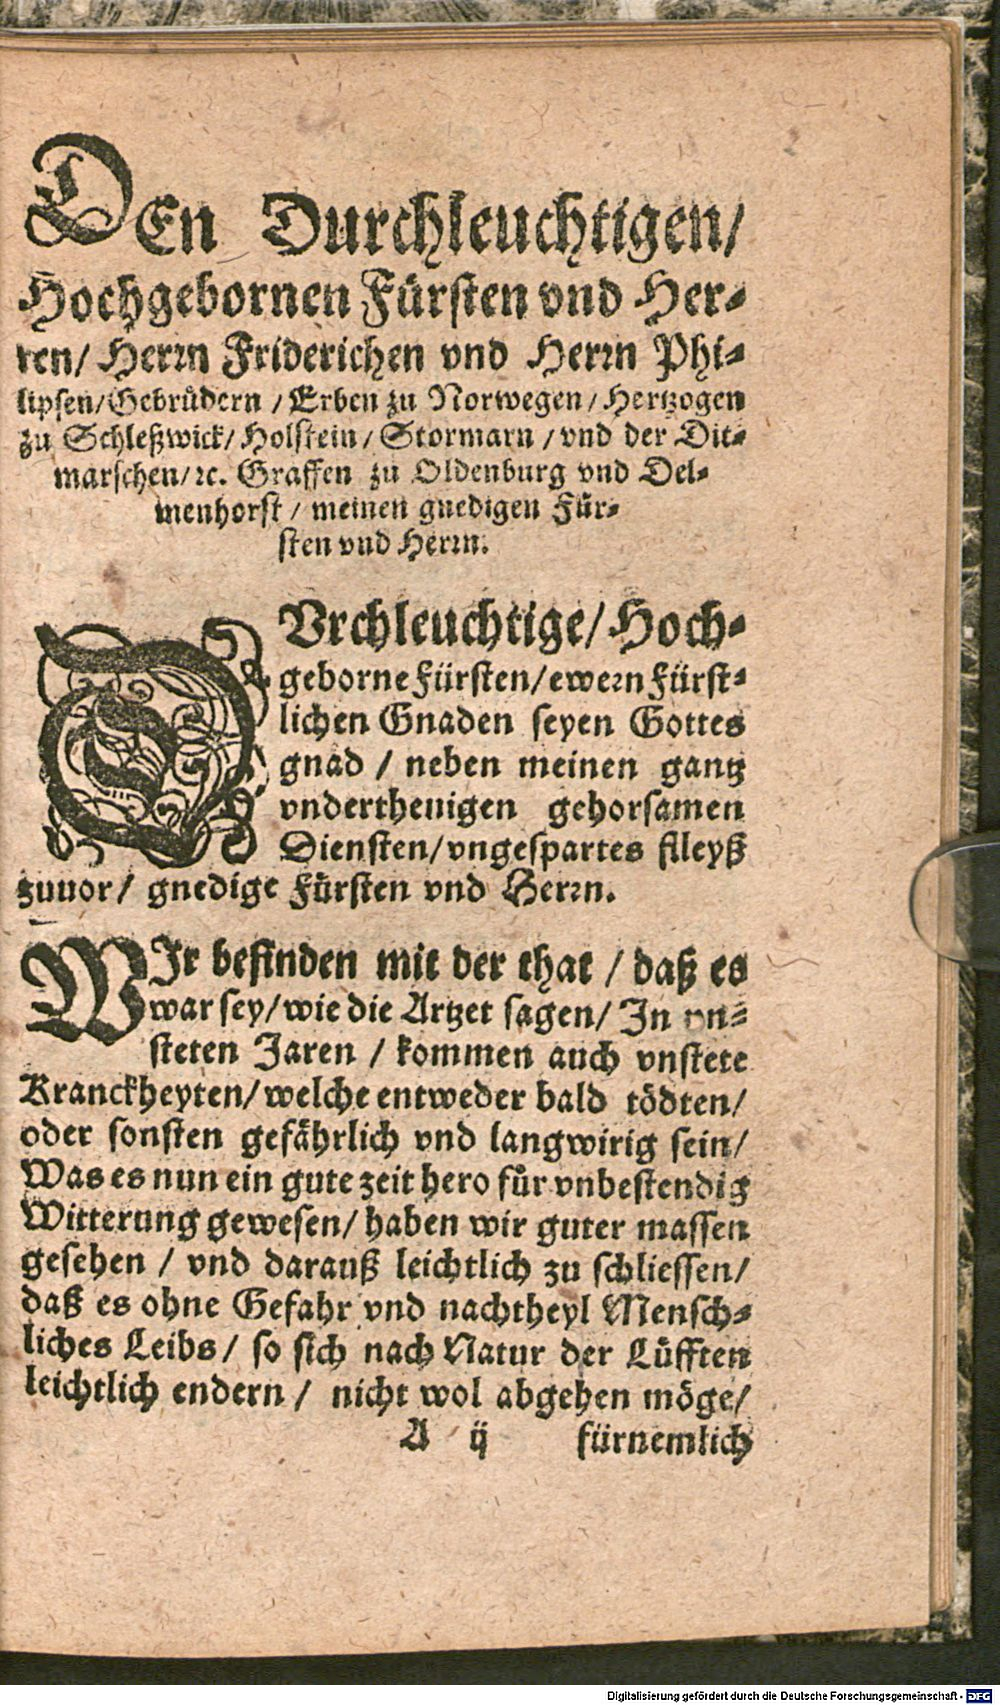 DEn Durchleuchtigen/
Hochgebornen Fürsten vnd Her-
ren/ Herrn Friderichen vnd Herrn Phi-
lipsen/Gebrüdern / Erben zu Norwegen/ Hertzogen
zu Schleßwick/ Holstein/ Stormarn / vnd der Dit-
marschen/ ꝛc. Graffen zu Oldenburg vnd Del-
menhorst / meinen gnedigen Für-
sten vnd Herrn.
DVrchleuchtige/ Hoch-
geborne Fürsten/ ewern Fürst-
lichen Gnaden seyen Gottes
gnad / neben meinen gantz
vnderthenigen gehorsamen
Diensten/ vngespartes fleyß
zuuor/ gnedige Fürsten vnd Herrn.
WIr befinden mit der that / daß es
war sey/ wie die Artzet sagen/ In vn-
steten Jaren / kommen auch vnstete
Kranckheyten/ welche entweder bald tödten/
oder sonsten gefährlich vnd langwirig sein/
Was es nun ein gute zeit hero für vnbestendig
Witterung gewesen/ haben wir guter massen
gesehen / vnd darauß leichtlich zu schliessen/
daß es ohne Gefahr vnd nachtheyl Mensch-
liches Leibs/ so sich nach Natur der Lüfften
leichtlich endern / nicht wol abgehen möge/
A ij fürnemlich
Digitalisierung gefördert durch die Deutsche Forschungsgemeinschaft - DFG